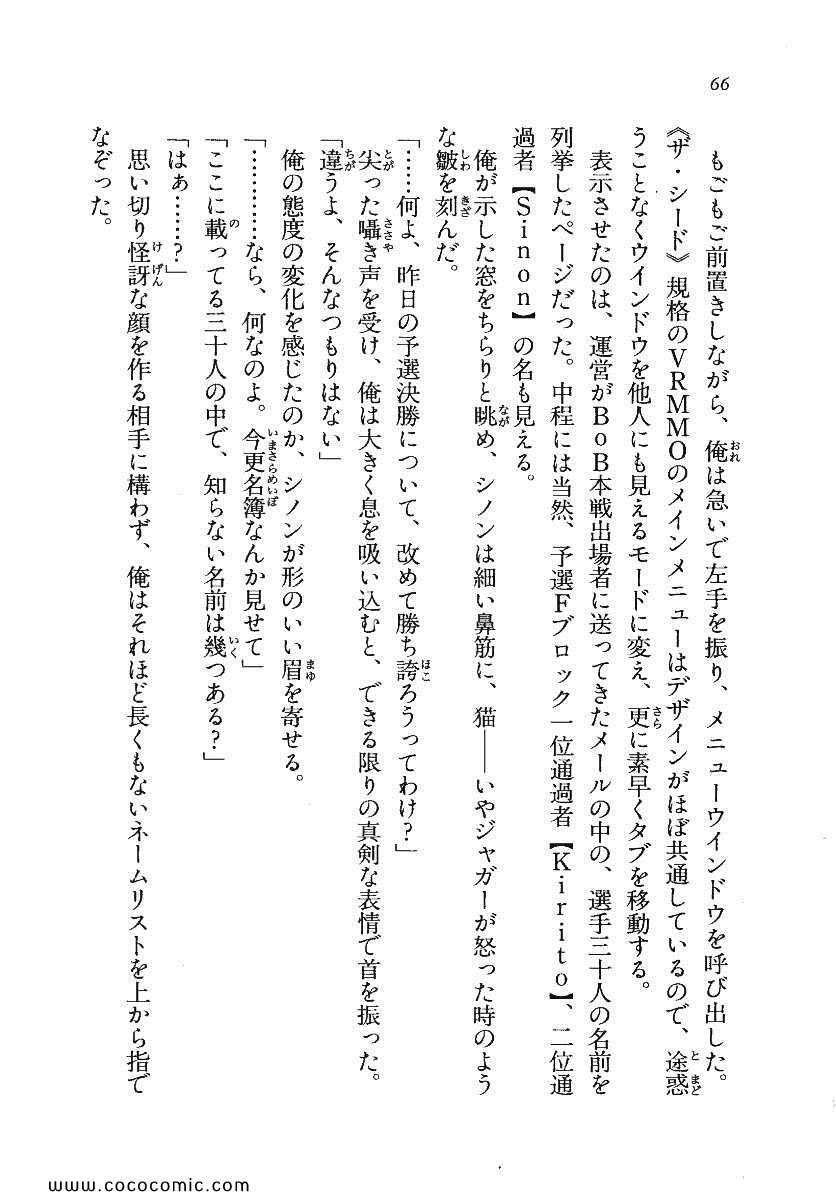 66
もごもご前置きしながら、俺は急いで左手を振り、メニューウインドウを呼び出した。
《ザ・シード》規格のＶＲＭＭＯのメインメニューはデザインがほぼ共通しているので、途惑
うことなくウインドウを他人にも見えるモードに変え、更に素早くタブを移動する。
表示させたのは、運営がＢｏＢ本戦出場者に送ってきたメールの中の、選手三十人の名前を
列挙したページだった。中程には当然、予選Ｆブロック一位通過者【Ｋｉｒｉｔｏ】、二位通
過者【Ｓｉｎｏｎ】の名も見える。
俺が示した窓をちらりと眺め、シノンは細い鼻筋に、猫――いやジャガーが怒った時のよう
な皺を刻んだ。
「……何よ、昨日の予選決勝について、改めて勝ち誇ろうってわけ？」
尖った囁き声を受け、俺は大きく息を吸い込むと、できる限りの真剣な表情で首を振った。
「違うよ、そんなつもりはない」
俺の態度の変化を感じたのか、シノンが形のいい眉を寄せる。
「…………なら、何なのよ。今更名簿なんか見せて」
「ここに載ってる三十人の中で、知らない名前は幾つある？」
「はぁ……？」
思い切り怪訝な顔を作る相手に構わず、俺はそれほど長くもないネームリストを上から指で
なぞった。
www.cococomic.com